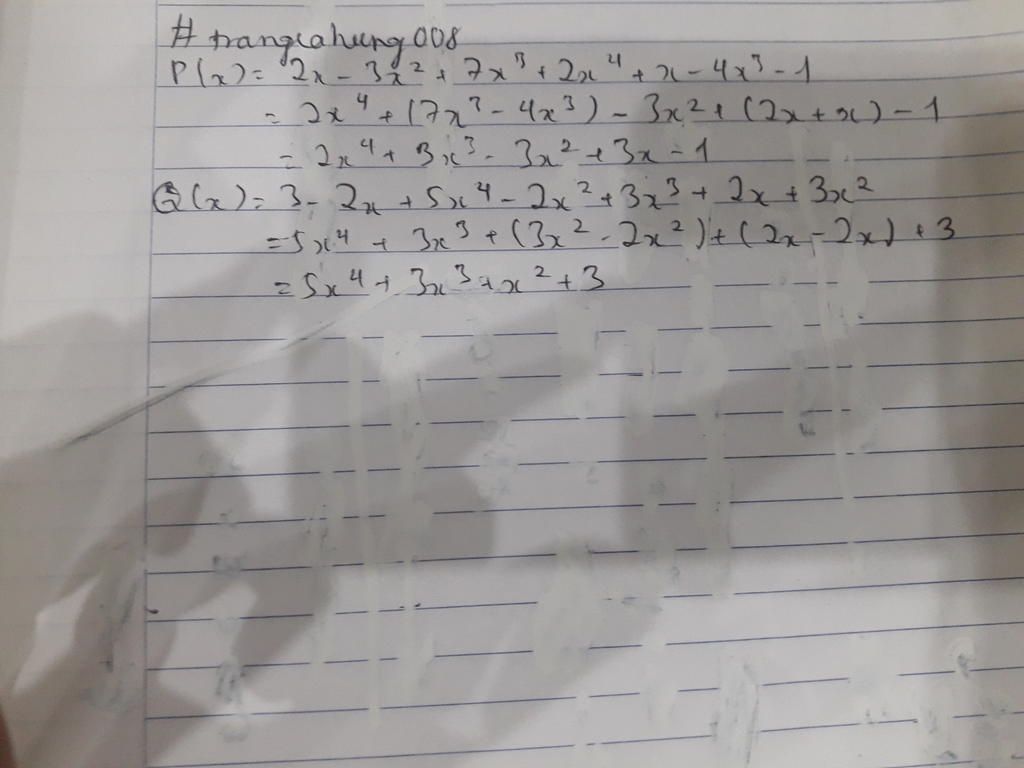 # trangcahung008
P(x) = 2x - 3x² + 7x³ + 2x⁴ + x - 4x³ - 1
= 2x⁴ + (7x³ - 4x³) - 3x² + (2x + x) - 1
= 2x⁴ + 3x³ - 3x² + 3x - 1
Q(x) = 3 - 2x + 5x⁴ - 2x² + 3x³ + 2x + 3x²
= 5x⁴ + 3x³ + (3x² - 2x²) + (2x - 2x) + 3
= 5x⁴ + 3x³ + x² + 3